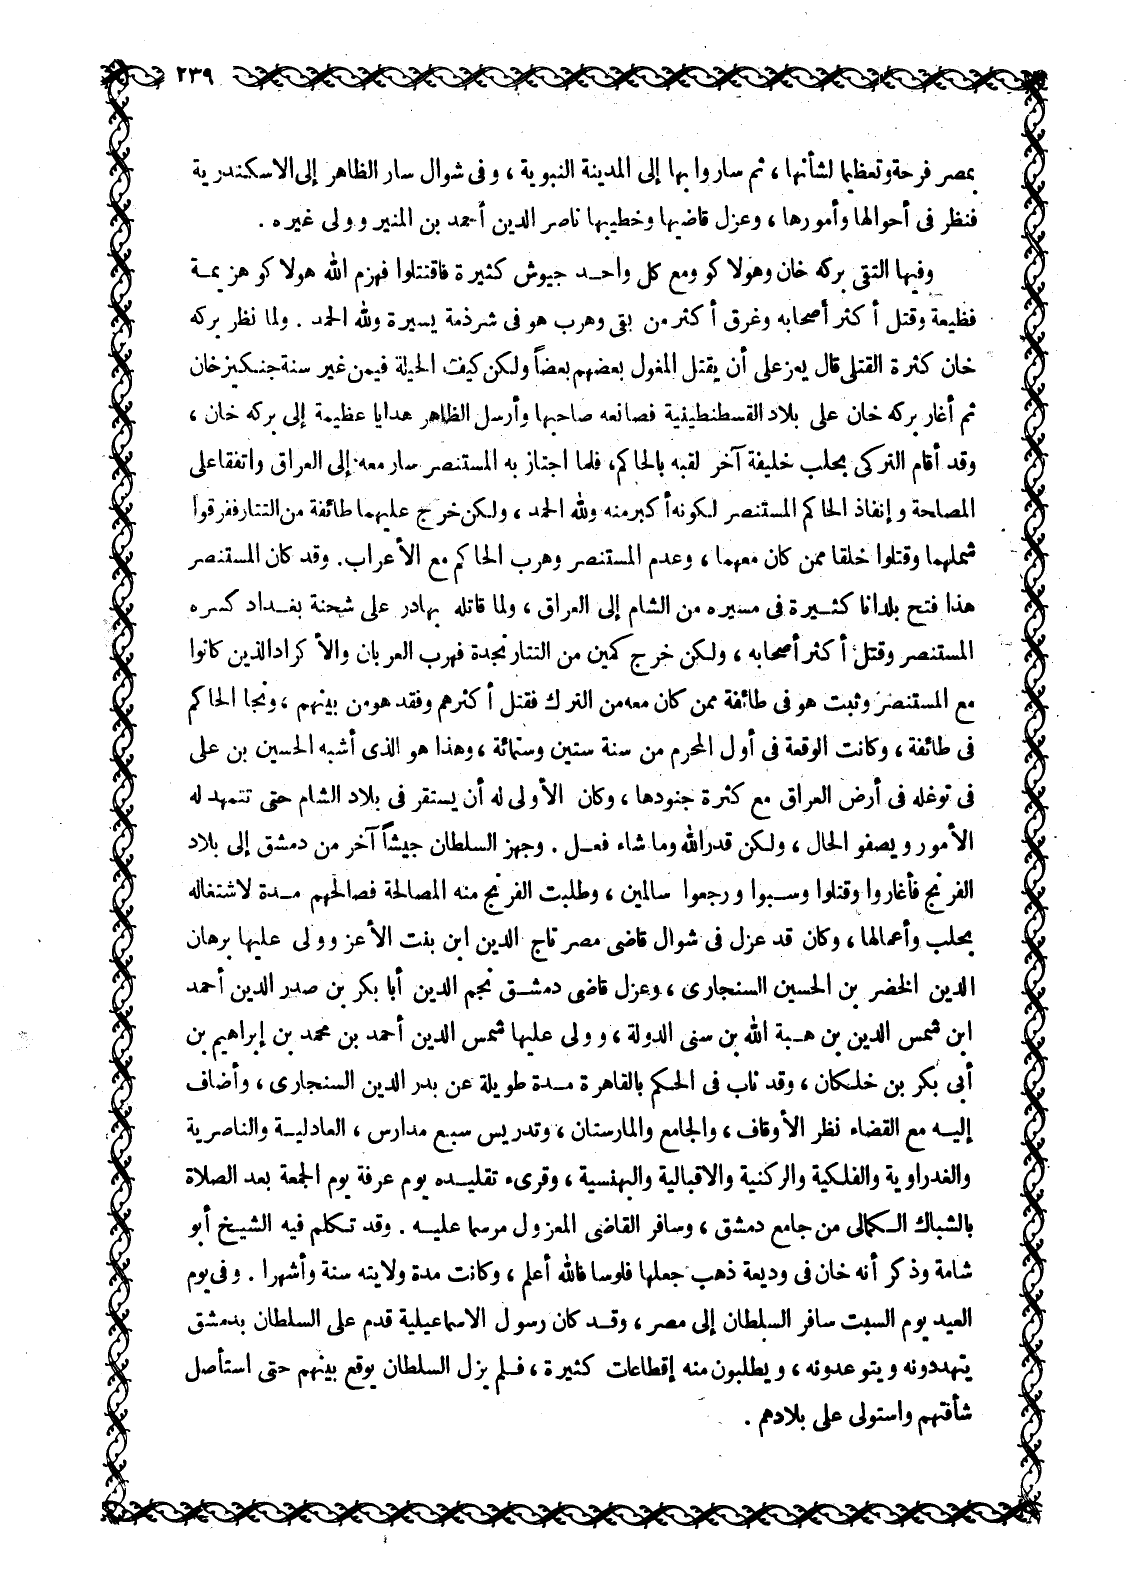 ٢٣٩
بمصر فرحة وتعظيما لشأنها ، ثم ساروا بها إلى المدينة النبوية ، وفى شوال سار الظاهر إلى الاسكندرية
فنظر فى أحوالها وأمورها ، وعزل قاضيها وخطيبها ناصر الدين أحمد بن المنير وولى غيره .
وفيها التقى بركه خان وهولاكو ومع كل واحد جيوش كثيرة فاقتتلوا فهزم الله هولاكو هزيمة
فظيعة وقتل أكثر أصحابه وغرق أكثر من بقى وهرب هو فى شرذمة يسيرة ولله الحمد . ولما نظر بركه
خان كثرة القتلى قال يعز على أن يقتل المغول بعضهم بعضاً ولكن كيف الحيلة فيمن غير سنة جنكيزخان
ثم أغار بركه خان على بلاد القسطنطينية فصانعه صاحبها وأرسل الظاهر هدايا عظيمة إلى بركه خان ،
وقد أقام التركى بحلب خليفة آخر لقبه بالحاكم، فلما اجتاز به المستنصر سار معه إلى العراق واتفقا على
المصلحة وإنفاذ الحاكم المستنصر لكونه أكبر منه ولله الحمد ، ولكن خرج عليهما طائفة من التتار ففرقوا
شملهما وقتلوا خلقا ممن كان معهما ، وعدم المستنصر وهرب الحاكم مع الأعراب. وقد كان المستنصر
هذا فتح بلدانا كثيرة فى مسيره من الشام إلى العراق ، ولما قاتله بهادر على شحنة بغداد كسره
المستنصر وقتل أكثر أصحابه ، ولكن خرج كمين من التتار نجدة فهرب العربان والأكراد الذين كانوا
مع المستنصر وثبت هو فى طائفة ممن كان معه من الترك فقتل أكثرهم وفقد هو من بينهم ، ونجا الحاكم
فى طائفة ، وكانت الوقعة فى أول المحرم من سنة ستين وستمائة ، وهذا هو الذى أشبه الحسين بن على
فى توغله فى أرض العراق مع كثرة جنودها ، وكان الأولى له أن يستقر فى بلاد الشام حتى تتمهد له
الأمور ويصفو الحال ، ولكن قدر الله وما شاء فعل . وجهز السلطان جيشاً آخر من دمشق إلى بلاد
الفرنج فأغاروا وقتلوا وسبوا ورجعوا سالمين ، وطلبت الفرنج منه المصالحة فصالحهم مدة لاشتغاله
بحلب وأعمالها ، وكان قد عزل فى شوال قاضى مصر تاج الدين ابن بنت الأعز وولى عليها برهان
الدين الخضر بن الحسين السنجارى ، وعزل قاضى دمشق نجم الدين أبا بكر بن صدر الدين أحمد
ابن شمس الدين بن هبة الله بن سنى الدولة ، وولى عليها شمس الدين أحمد بن محمد بن إبراهيم بن
أبى بكر بن خلكان ، وقد ناب فى الحكم بالقاهرة مدة طويلة عن بدر الدين السنجارى ، وأضاف
إليه مع القضاء نظر الأوقاف ، والجامع والمارستان ، وتدريس سبع مدارس ، العادلية والناصرية
والغدراوية والفلكية والركنية والاقبالية والبهنسية ، وقرىء تقليده يوم عرفة يوم الجمعة بعد الصلاة
بالشباك الكمالى من جامع دمشق ، وسافر القاضى المعزول مرسما عليه . وقد تكلم فيه الشيخ أبو
شامة وذكر أنه خان فى وديعة ذهب جعلها فلوسا فالله أعلم ، وكانت مدة ولايته سنة وأشهرا . وفى يوم
العيد يوم السبت سافر السلطان إلى مصر ، وقد كان رسول الاسماعيلية قدم على السلطان بدمشق
يتهددونه ويتوعدونه ، ويطلبون منه إقطاعات كثيرة ، فلم يزل السلطان يوقع بينهم حتى استأصل
شأفتهم واستولى على بلادهم .